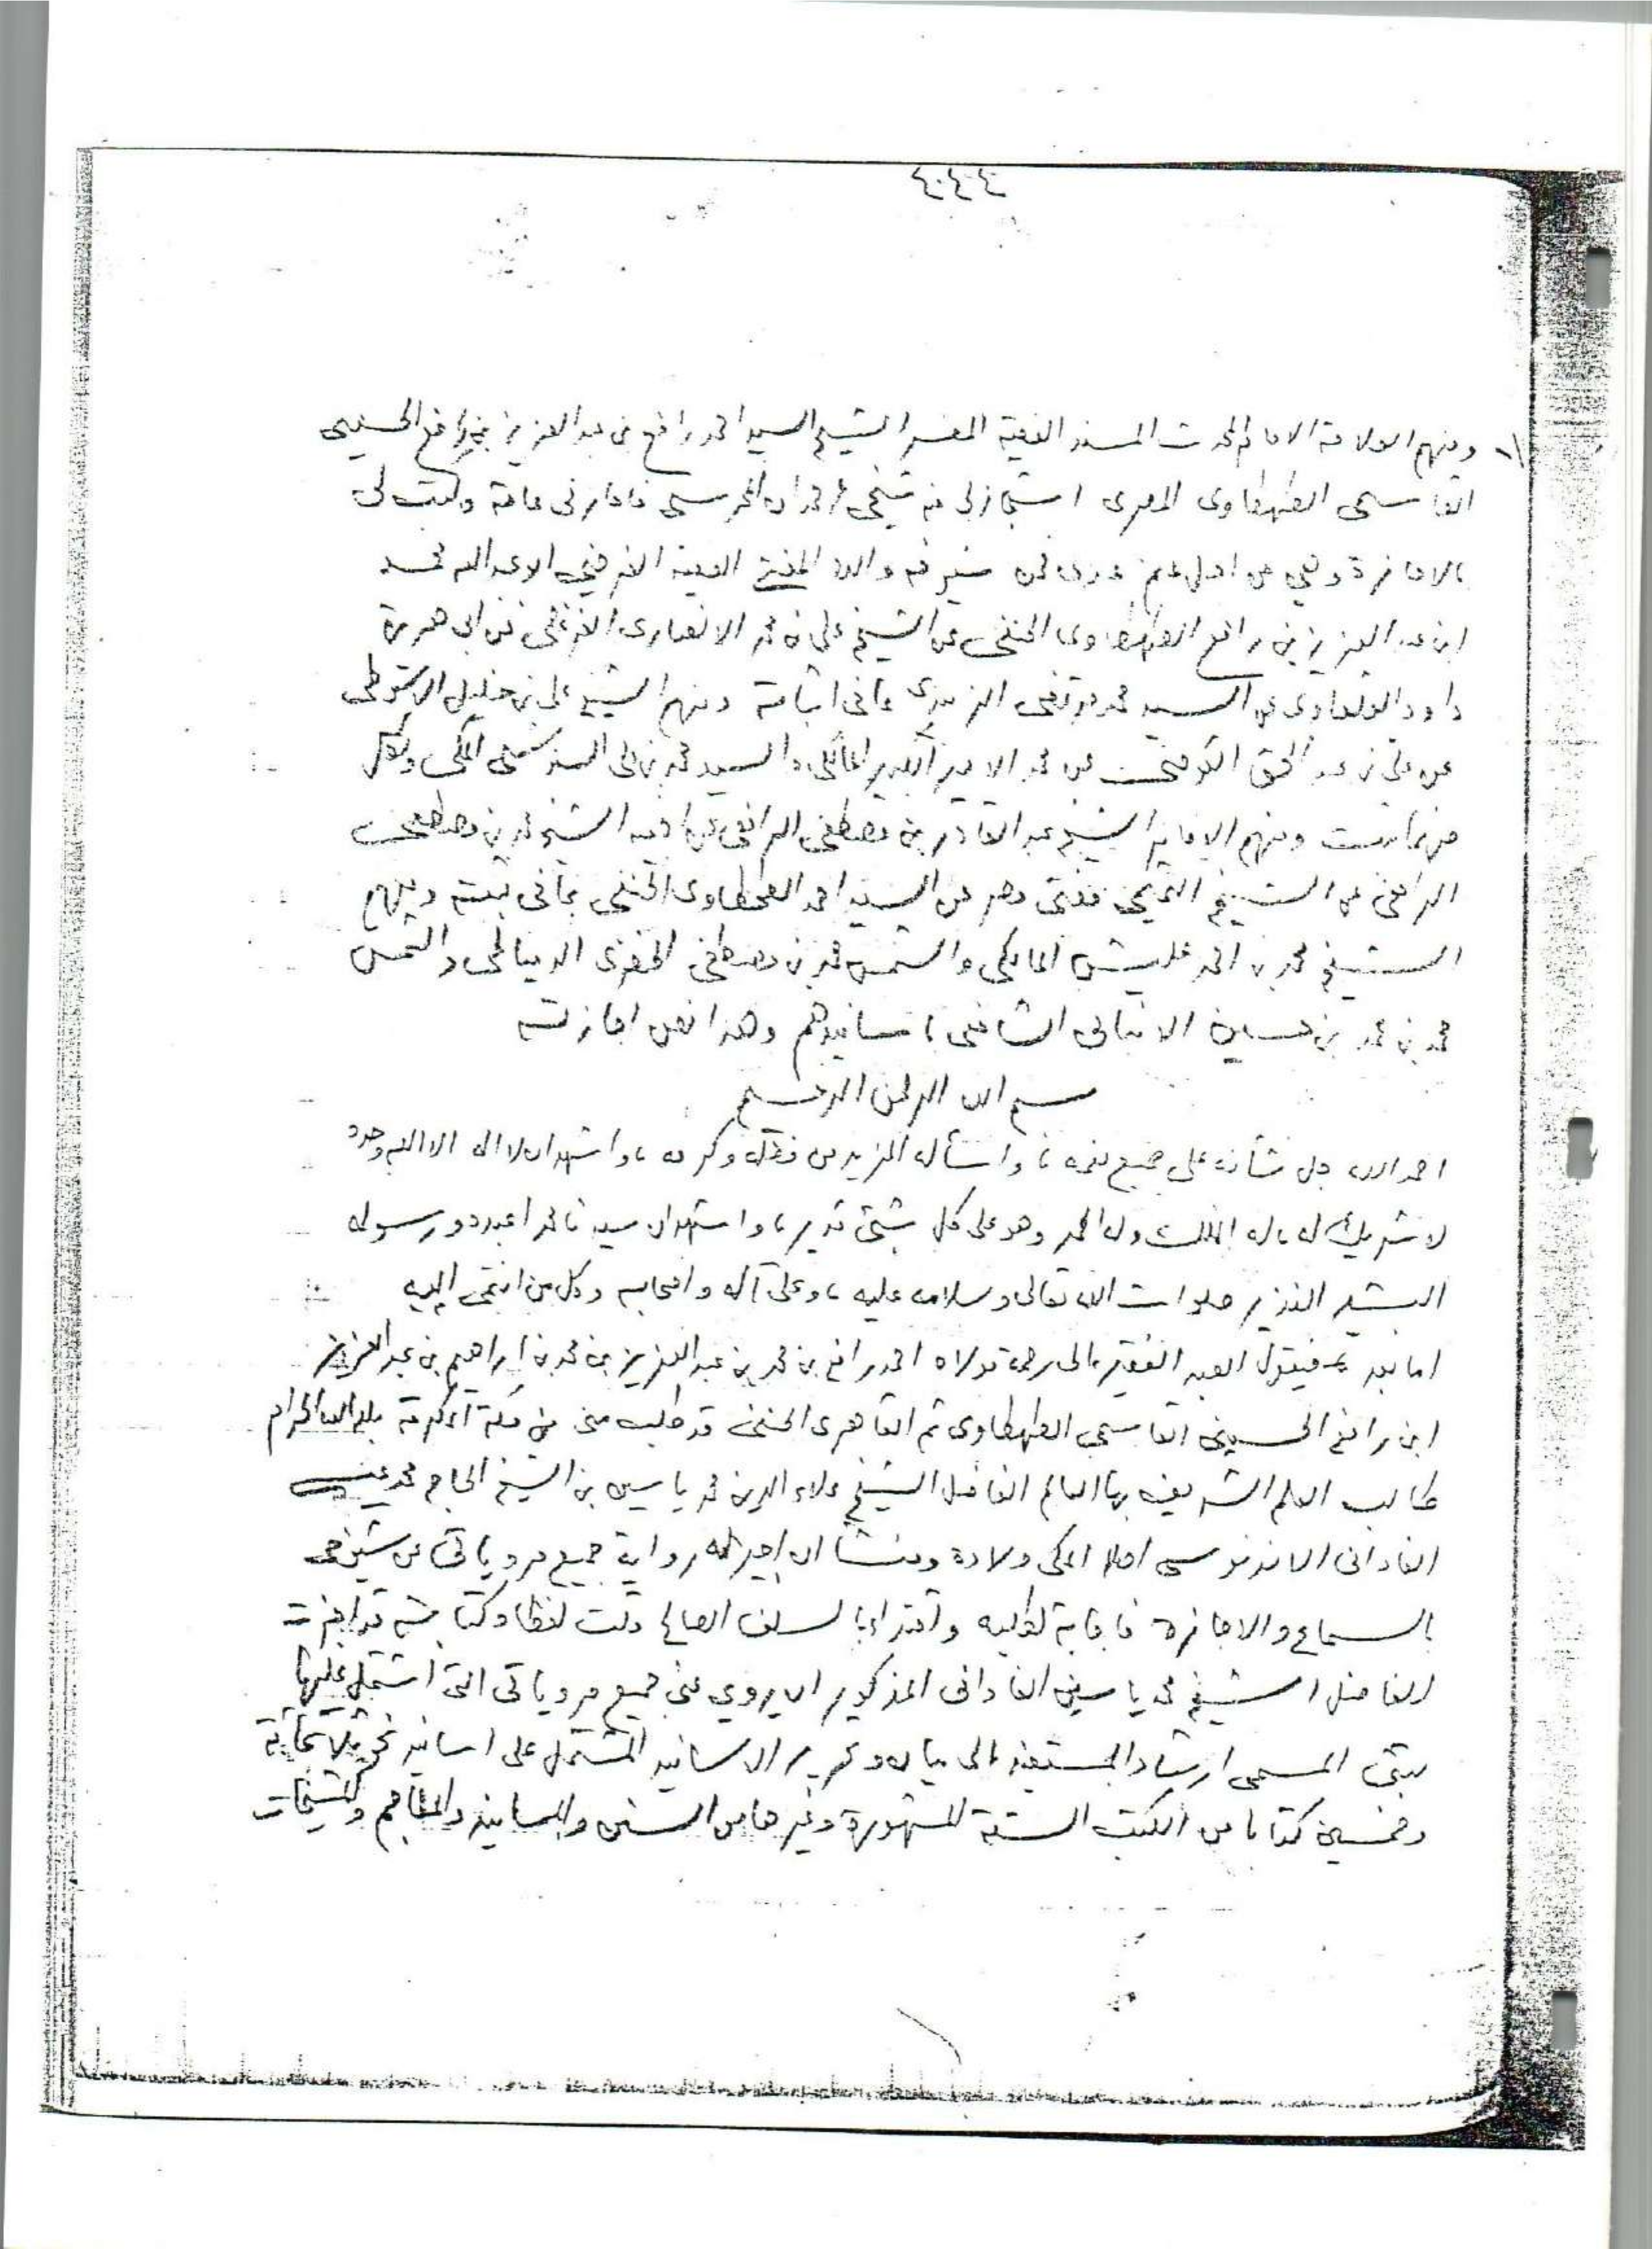 ومنهم العلامة الامام المحدث المسند الفقيه المفسر الشيخ السيد احمد رافع بن عبد العزيز بن رافع الحسينى
القاسمى الطهطاوى المصرى استجاز لى منه شيخى عمر حمدان المحرسى فاجازنى عامة وكتب لى
بالاجازة وهى من اهل علم فمن شيوخه والده المفتى الفقيه ابو عبد الله محمد
ابن عبد العزيز بن رافع الطهطاوى الحنفى عن الشيخ على بن محمد الانصارى الفرغلى عن ابى هريرة
داود القلعاوى عن السيد محمد مرتضى الزبيدى بما فى اثباته ومنهم الشيخ على بن خليل الاسيوطى
عن على بن عبد الحق القوصى عن محمد الامير الكبير المالكى والسيد محمد بن على السنوسى المكى ولكل
منهما ثبت ومنهم الامام الشيخ عبد القادر بن مصطفى الرافعى عن اخيه الشيخ محمد بن مصطفى
الرافعى عن الشيخ التميمى مفتى مصر عن السيد احمد الطحطاوى الحنفى بما فى ثبته ومنهم
الشيخ محمد بن احمد عليش المالكى والشمس محمد بن مصطفى الخضرى الدمياطى والشمس
محمد بن محمد بن حسين الانبابى الشافعى باسانيدهم وهذا نص اجازته
بسم الله الرحمن الرحيم
احمد الله جل شأنه على جميع نعمه، واسأله المزيد من فضله وكرمه، واشهد ان لا اله الا الله وحده
لا شريك له، له الملك وله الحمد وهو على كل شىء قدير، واشهد ان سيدنا محمدا عبده ورسوله
البشير النذير صلوات الله تعالى وسلامه عليه، وعلى آله واصحابه وكل من انتمى اليه
اما بعد فيقول العبد الفقير الى رحمة مولاه احمد رافع بن محمد بن عبد العزيز بن محمد بن ابراهيم بن عبد العزيز
ابن رافع الحسينى القاسمى الطهطاوى ثم القاهرى الحنفى قد طلب منى من مكة المكرمة بلد الله الحرام
طالب العلم الشريف بها العالم الفاضل الشيخ علاء الدين محمد ياسين بن الشيخ الحاج محمد عيسى
الفادانى الاندنوسى اصلا المكى ولادة ومنشأ ان اجيز له رواية جميع مروياتى عن شيوخى
بالسماع والاجازة فاجابة لطلبه واقتداء بالسلف الصالح قلت لفظا وكتابة قد اجزت
الفاضل الشيخ محمد ياسين الفادانى المذكور ان يروى عنى جميع مروياتى التى اشتمل عليها
ثبتى المسمى ارشاد المستفيد الى بيان وتحرير الاسانيد المشتمل على اسانيد نحو ثلاثمائة
وخمسين كتابا من الكتب الستة المشهورة وغيرها من السنن والمسانيد والمعاجم والمشيخات